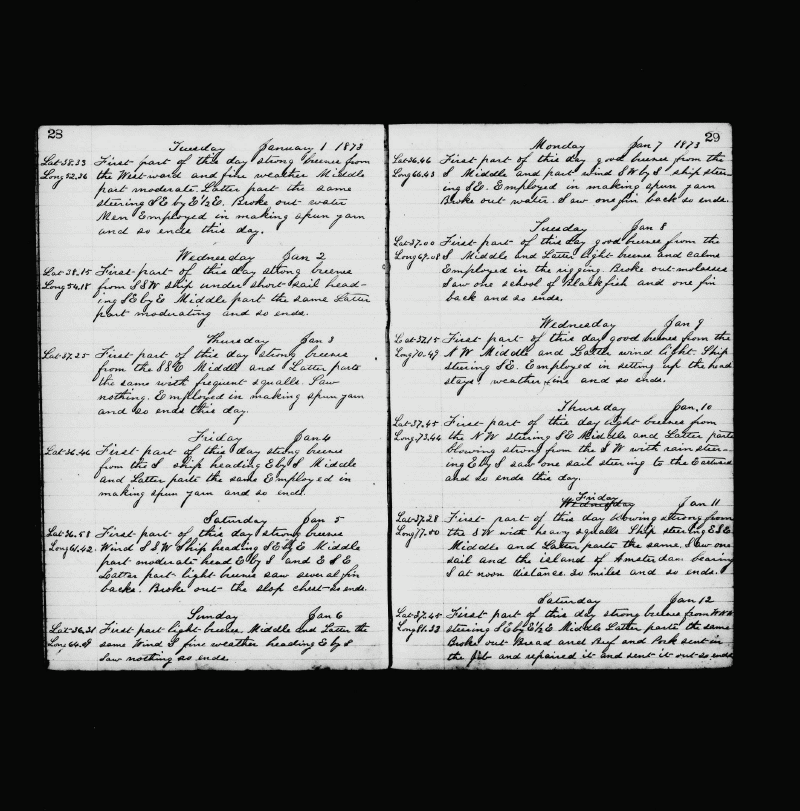 28
Tuesday January 1 1873
Lat 38.33 First part of this day strong breeze from
Long 52.36 the Westward and fine weather Middle
part moderate. Latter part the same
steering SE by E 1/2 E. Broke out water
Men Employed in making spun yarn
and so ends this day.
Wednesday Jan 2
Lat 38.15 First part of this day strong breeze
Long 54.18 from SSW ship under short sail head-
ing SE by E Middle part the same Latter
part moderating and so ends.
Thursday Jan 3
Lat 37.25 First part of this day strong breeze
from the SSE Middle and Latter parts
the same with frequent squalls. Saw
nothing. Employed in making spun yarn
and so ends this day.
Friday Jan 4
Lat 36.46 First part of this day strong breeze
from the S ship heading E by S Middle
and Latter parts the same Employed in
making spun yarn and so ends.
Saturday Jan 5
Lat 36.58 First part of this day strong breeze
Long 61.42 Wind SSW Ship heading SE by E Middle
part moderate head E by S and ESE
Latter part light breeze saw several fin
backs. Broke out the slop chest so ends.
Sunday Jan 6
Lat 36.31 First part light breeze. Middle and Latter the
Long 64. same Wind S fine weather heading E by S
Saw nothing so ends.
29
Monday Jan 7 1873
Lat 36.46 First part of this day good breeze from the
Long 66.43 S Middle and part wind SW by S ship steer-
ing SE. Employed in making spun yarn
Broke out water. Saw one fin back so ends.
Tuesday Jan 8
Lat 37.00 First part of this day good breeze from the
Long 67.08 S Middle and Latter light breeze and calms
Employed in the rigging. Broke out molasses
Saw one school of Blackfish and one fin
back and so ends.
Wednesday Jan 9
Lat 37.15 First part of this day good breeze from the
Long 70.49 NW Middle and Latter wind light. Ship
steering SE. Employed in setting up the head
stays weather fine and so ends.
Thursday Jan. 10
Lat 37.45 First part of this day light breeze from
Long 73.44 the NW steering SE Middle and Latter parts
blowing strong from the SW with rain steer-
ing E by S saw one sail steering to the Eastward
and so ends this day.
Friday
Wednesday Jan 11
Lat 37.28 First part of this day blowing strong from
Long 77.50 the SW with heavy squalls Ship steering ESE.
Middle and Latter parts the same. Saw one
sail and the island of Amsterdam bearing
S at noon distance 30 miles and so ends.
Saturday Jan 12
Lat 37.45 First part of this day strong breeze from WNW
Long 81.33 steering SE by E 1/2 E Middle Latter parts the same
Broke out Bread and Beef and Pork sent in
the jib and repaired it and sent it out so ends